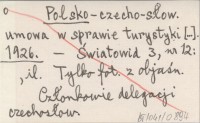 o Polsko-czecho-słow.
umowa w sprawie turystyki [-].
1926. - Światowid 3, nr 12:
, il. Tylko fot. z objaśn.
Członkowie delegacji
czechosłow.